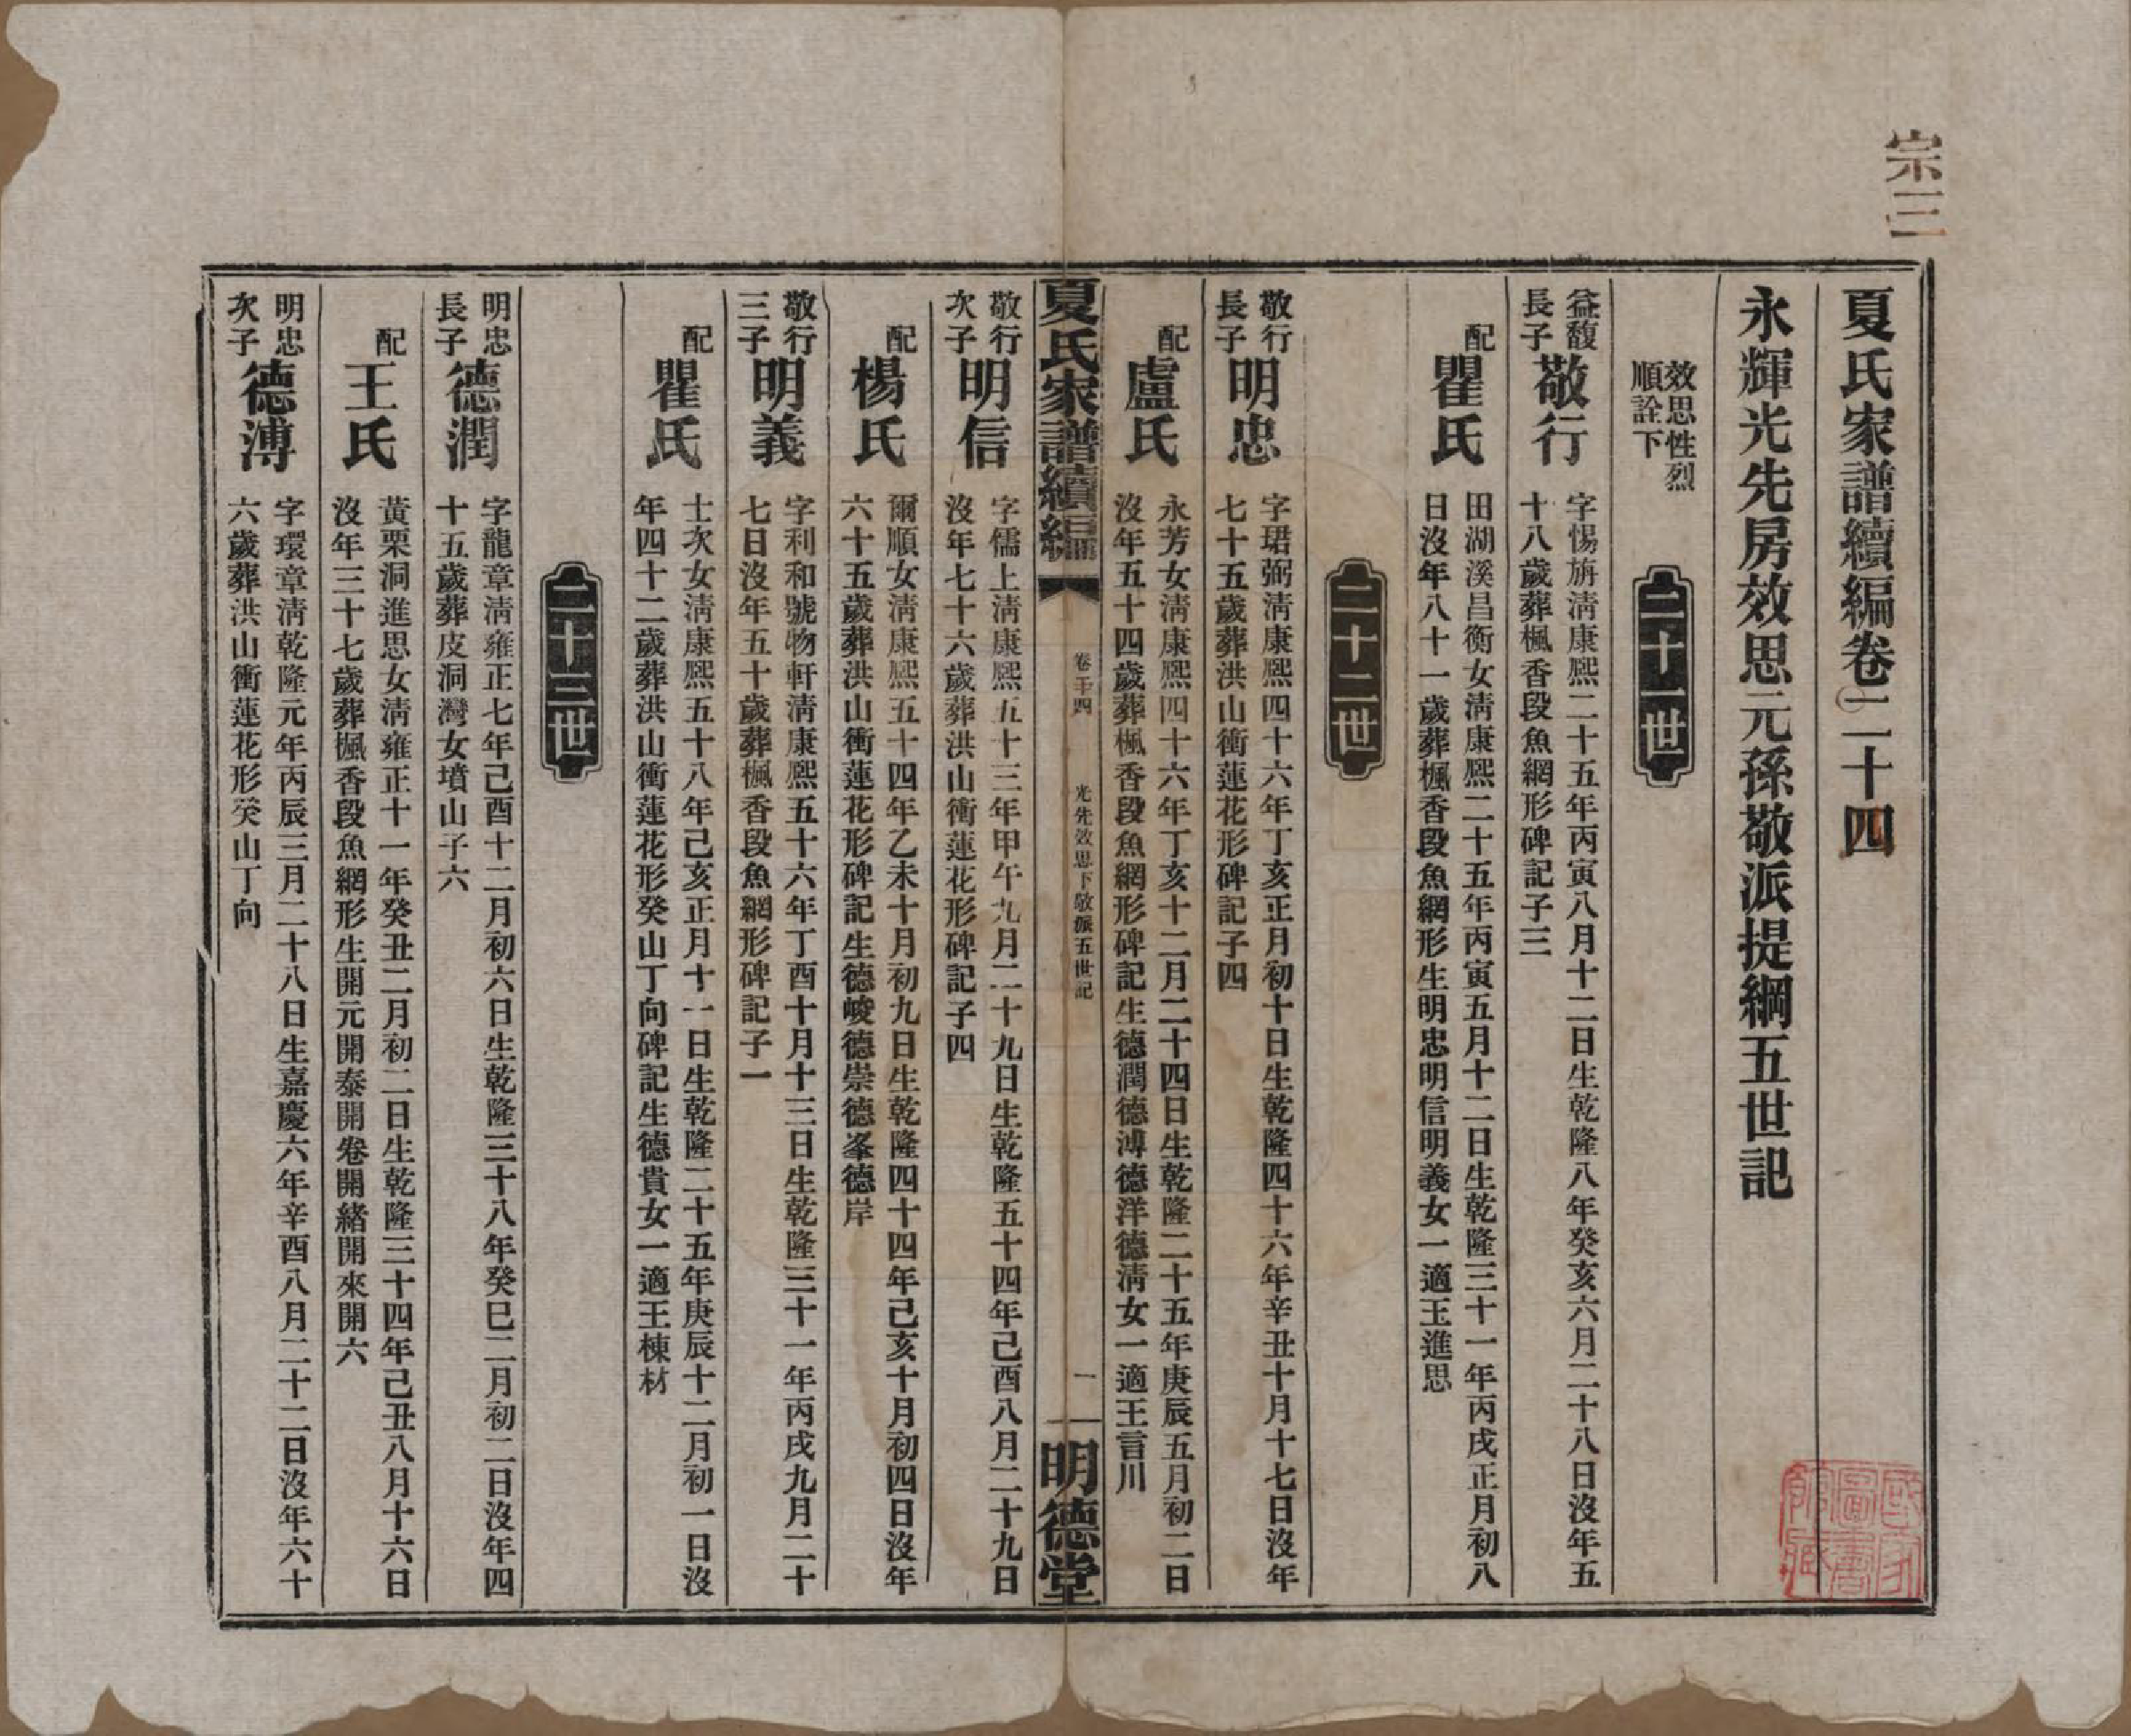 宗三
夏氏家譜續編卷二十四
永輝光先房效思元孫敬派提綱五世記
效思性烈
順詮下
二十一世
益馥
長子
敬行
字惕旃淸康熙二十五年丙寅八月十二日生乾隆八年癸亥六月二十八日沒年五
十八歲葬楓香段魚網形碑記子三
配
瞿氏
田湖溪昌衡女淸康熙二十五年丙寅五月十二日生乾隆三十一年丙戌正月初八
日沒年八十一歲葬楓香段魚網形生明忠明信明義女一適王進思
二十二世
敬行
長子
明忠
字珺弼淸康熙四十六年丁亥正月初十日生乾隆四十六年辛丑十月十七日沒年
七十五歲葬洪山衝蓮花形碑記子四
配
盧氏
永芳女淸康熙四十六年丁亥十二月二十四日生乾隆二十五年庚辰五月初二日
沒年五十四歲葬楓香段魚網形碑記生德潤德溥德洋德淸女一適王言川
夏氏家譜續編
卷二十四
光先效思下敬派五世記
一
明德堂
敬行
次子
明信
字儒上淸康熙五十三年甲午九月二十九日生乾隆五十四年己酉八月二十九日
沒年七十六歲葬洪山衝蓮花形碑記子四
配
楊氏
爾順女淸康熙五十四年乙未十月初九日生乾隆四十四年己亥十月初四日沒年
六十五歲葬洪山衝蓮花形碑記生德峻德崇德峯德岸
敬行
三子
明義
字利和號物軒淸康熙五十六年丁酉十月十三日生乾隆三十一年丙戌九月二十
七日沒年五十歲葬楓香段魚網形碑記子一
配
瞿氏
士次女淸康熙五十八年己亥正月十一日生乾隆二十五年庚辰十二月初一日沒
年四十二歲葬洪山衝蓮花形癸山丁向碑記生德貴女一適王棟材
二十三世
明忠
長子
德潤
字龍章淸雍正七年己酉十二月初六日生乾隆三十八年癸巳二月初二日沒年四
十五歲葬皮洞灣女墳山子六
配
王氏
黃栗洞進思女淸雍正十一年癸丑二月初二日生乾隆三十四年己丑八月十六日
沒年三十七歲葬楓香段魚網形生開元開泰開卷開緒開來開六
明忠
次子
德溥
字環章淸乾隆元年丙辰三月二十八日生嘉慶六年辛酉八月二十二日沒年六十
六歲葬洪山衝蓮花形癸山丁向
國家圖書館藏